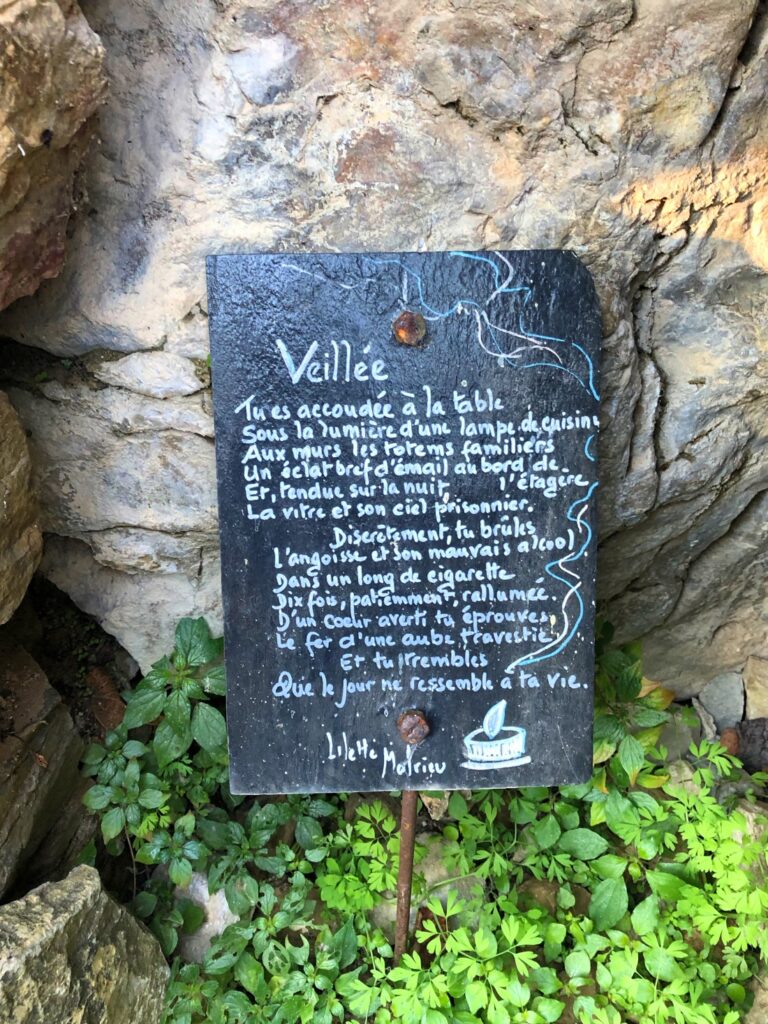 Veillée
Tu es accoudée à la table
Sous la lumière d'une lampe de cuisine
Aux murs les totems familiers
Un éclat bref d'émail au bord de
l'étagère
Et, tendue sur la nuit,
La vitre et son ciel prisonnier.
Discrètement, tu brûles
L'angoisse et son mauvais alcool
Dans un long de cigarette
Dix fois, patiemment, rallumée.
D'un coeur averti tu éprouves
Le fer d'une aube travestie
Et tu trembles
Que le jour ne ressemble à ta vie.
Lilette